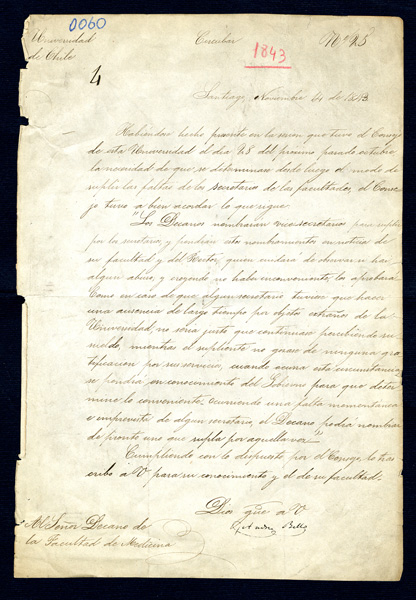 0060
Universidad
de Chile
Circular
Nº 25
1843
4
Santiago, Noviembre 4 de 1843
Habiendose hecho presente en la sesion que tuvo el Consejo
de esta Universidad el dia 28 del proximo pasado octubre
la necesidad de que se determinase desde luego el modo de
suplir las faltas de los secretarios de las facultades, el Conse
jo tuvo a bien acordar lo que sigue
"Los Decanos nombraran vice-secretarios para suplir
por la secretaria, y pondran estos nombramientos en noticia de
su facultad y del Rector, quien cuidará de observar si hai
algun abuso, y creyendo no haber inconveniente, los aprobará
Como en caso de que algun secretario tuviese que hacer
una ausencia de largo tiempo por objeto estraño de la
Universidad, no seria justo que continuase percibiendo su
sueldo, mientras el suplente no goza de ninguna gra
tificacion por su servicio, cuando ocurra esta circunstancia,
se pondrá en conocimiento del Gobierno para que deter
mine lo conveniente; ocurriendo una falta momentanea
o imprevista de algun secretario, el Decano podrá nombrar
de pronto uno que supla por aquella vez"
Cumpliendo con lo dispuesto por el Consejo, lo tras
cribo a V para su conocimiento y el de su facultad.
Dios gue a V
Andres Bello
Al Señor Decano de
la Facultad de Medicina